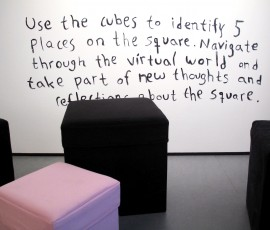 Use the cubes to identify 5
places on the square. Navigate
through the virtual world and
take part of new thoughts and
reflections about the square.